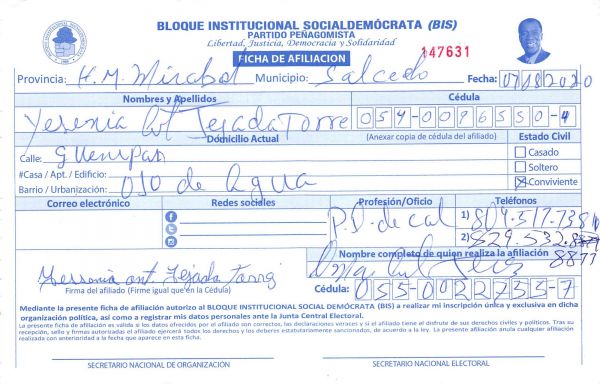 BLOQUE INSTITUCIONAL SOCIALDEMÓCRATA (BIS)
PARTIDO PEÑAGOMISTA
Libertad, Justicia, Democracia y Solidaridad
FICHA DE AFILIACION 147631
Provincia: H.M. Mirabal Municipio: Salcedo Fecha:
Nombres y Apellidos Cédula
Yesenia Ant Tejada Torre 054-0096550-4
Domicilio Actual (Anexar copia de cédula del afiliado) Estado Civil
Calle:
Casado
#Casa / Apt. / Edificio:
Soltero
Barrio / Urbanización: Ojo de Agua
Conviviente
Correo electrónico Redes sociales Profesión/Oficio Teléfonos
1) 809.517.7381
2) 829.532.
8877
Nombre completo de quien realiza la afiliación
Firma del afiliado (Firme igual que en la Cédula)
Cédula: 055-0022735-7
Mediante la presente ficha de afiliación autorizo al BLOQUE INSTITUCIONAL SOCIAL DEMÓCRATA (BIS) a realizar mi inscripción única y exclusiva en dicha
organización política, así como a registrar mis datos personales ante la Junta Central Electoral.
La presente ficha de afiliación es válida si los datos ofrecidos por el afiliado son correctos, las declaraciones veraces y si el afiliado tiene el disfrute de sus derechos civiles y políticos. Tras su
recepción, sello y firmas autorizadas el afiliado ejercerá todos los derechos y los deberes estatutariamente sancionados, de acuerdo a la ley. La presente afiliación anula cualquier afiliación
realizada con anterioridad a la fecha que aparece en esta ficha.
SECRETARIO NACIONAL DE ORGANIZACIÓN SECRETARIO NACIONAL ELECTORAL